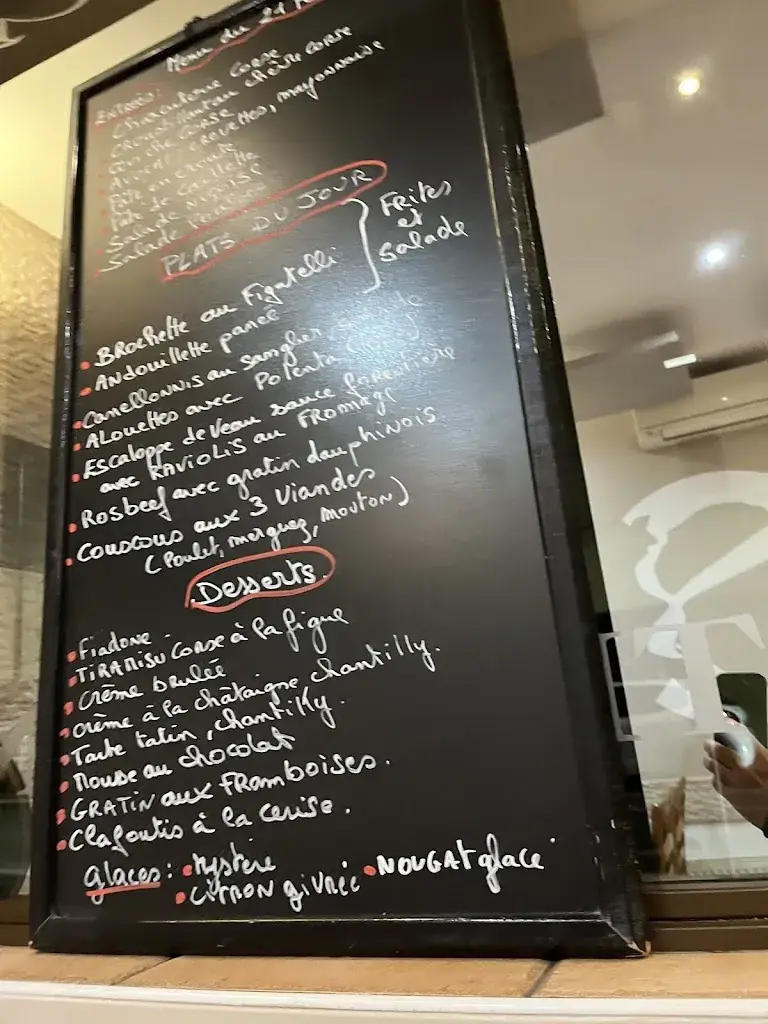 Menu du 21
ENTREES:
Charcuterie CORSE
Croustillant au chèvre CORSE
CORSE
CREVETTES, mayonnaise
Pâté en croute
Salade NIÇOISE
Salade
PLATS DU JOUR
Frites
et
salade
BROCHETTE au Figatelli
ANDOUILLETTE panée
Canellonnis au sanglier,
ALOUETTES avec POLENTA
Escaloppe de Veau sauce forestière
avec RAVIOLIS au FROMAGE
Rosbeef avec gratin dauphinois
Couscous aux 3 Viandes
(Poulet, merguez, mouton)
Desserts
Fiadone
TIRAMISU CORSE à la figue
Crème brulée
crème à la châtaigne chantilly.
Tarte tatin, chantilly.
Mousse au chocolat
GRATIN aux FRAMBOISES.
Clafoutis à la cerise.
glaces: Mystère
CITRON givrée NOUGAT glacé
ET